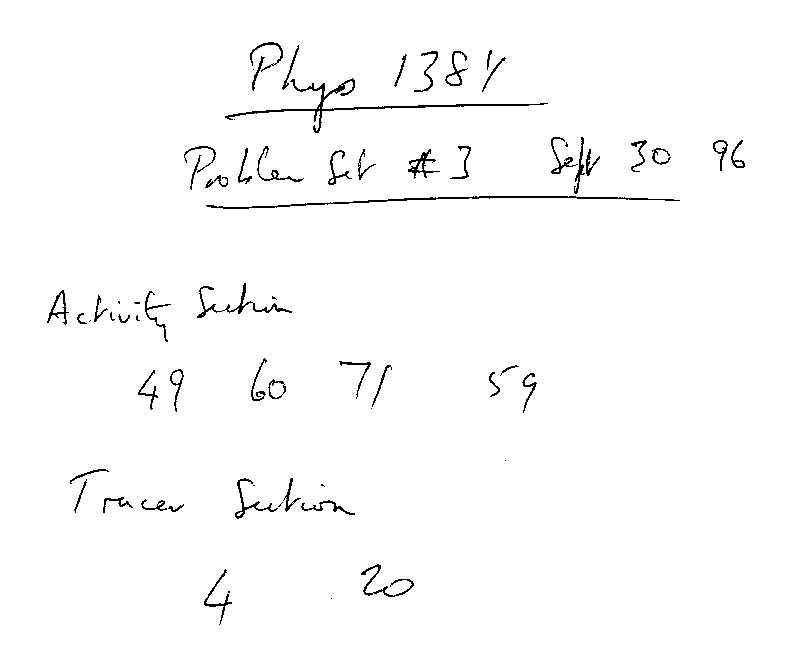 Phys 138Y
Problem Set #3 Sept 30 96
Activity Section
49 60 71 59
Tracer Section
4 20